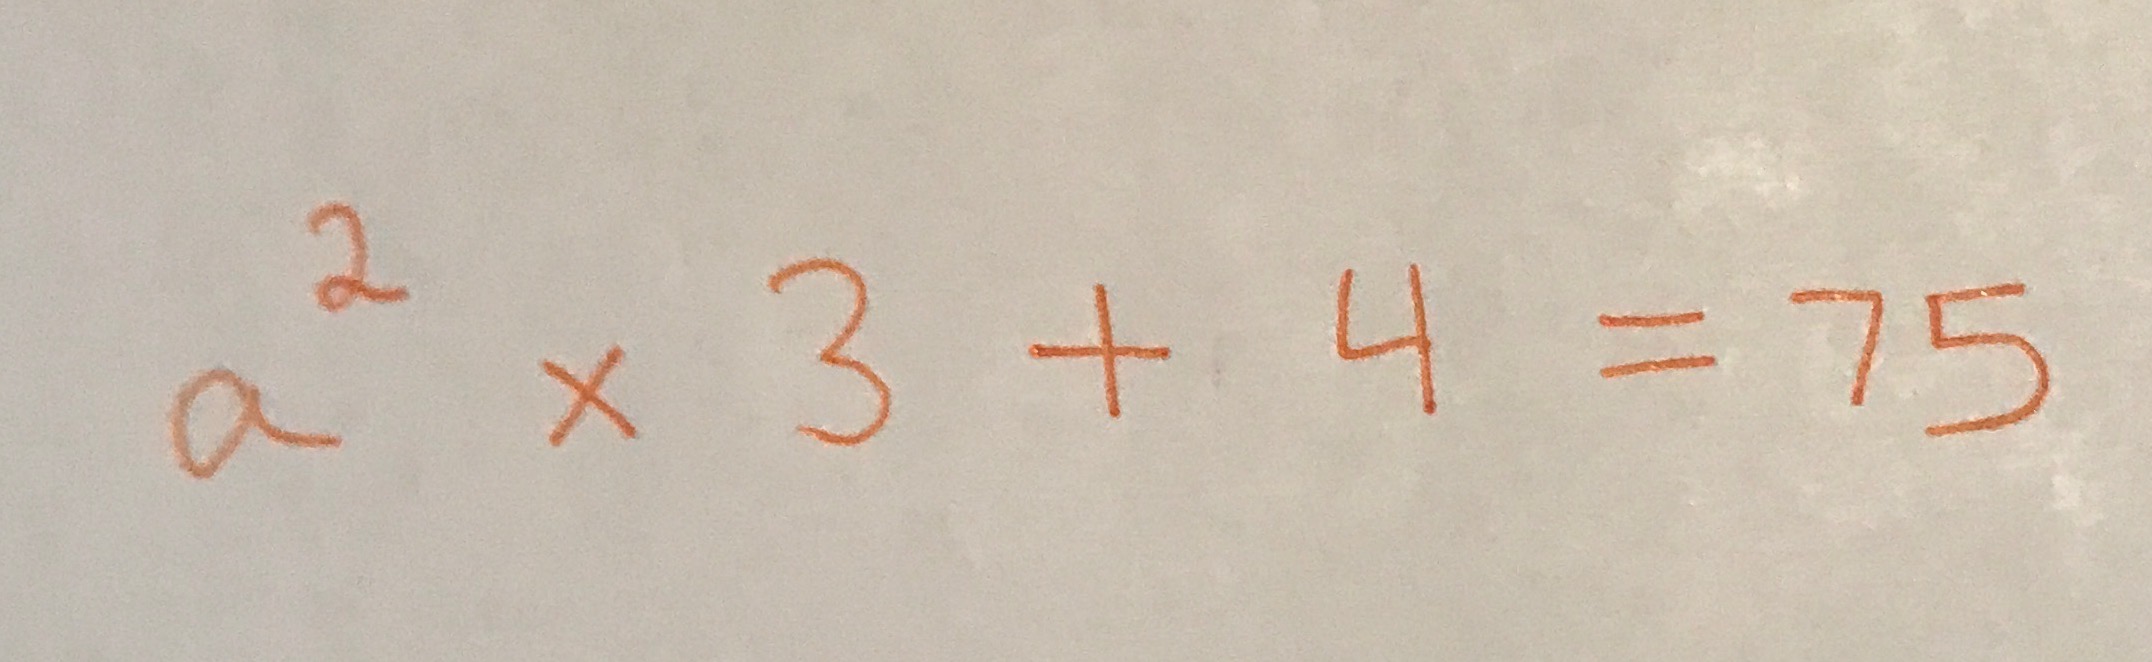 a² × 3 + 4 = 75